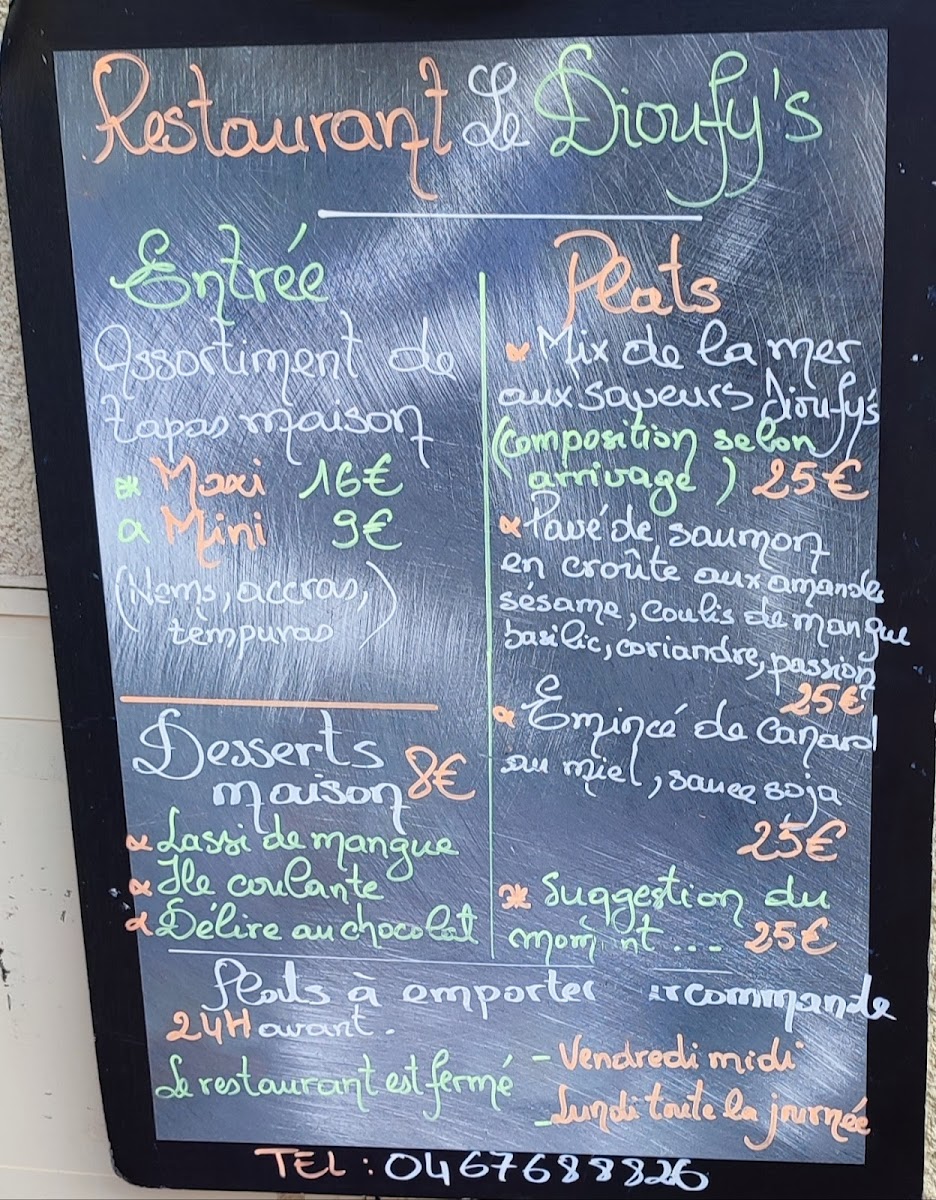 Restaurant Le Dioufy's
Entrée
Assortiment de
tapas maison
Maxi 16€
Mini 9€
(Nems, accras,
tempuras)
Desserts
maison 8€
Lassi de mangue
Ile coulante
Délire au chocolat
Plats
Mix de la mer
aux saveurs Dioufy's
(Composition selon
arrivage) 25€
Pavé de saumon
en croûte aux amande
sésame, coulis de mangue
basilic, coriandre, passion
25€
Emincé de Canard
au miel, sauce soja
25€
Suggestion du
... 25€
Plats à emporter commande
24H avant.
Le restaurant est fermé - Vendredi midi
- Lundi toute la journée
TEL : 0467688826